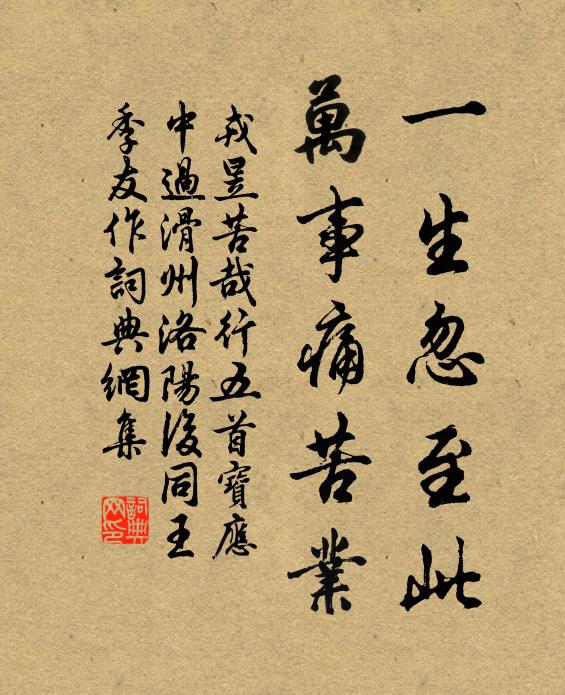 一生忽至此
萬事痛苦業
戎昱苦哉行五首寶應
中過滑州洛陽後同王
季友作詞典網集
詞典网印